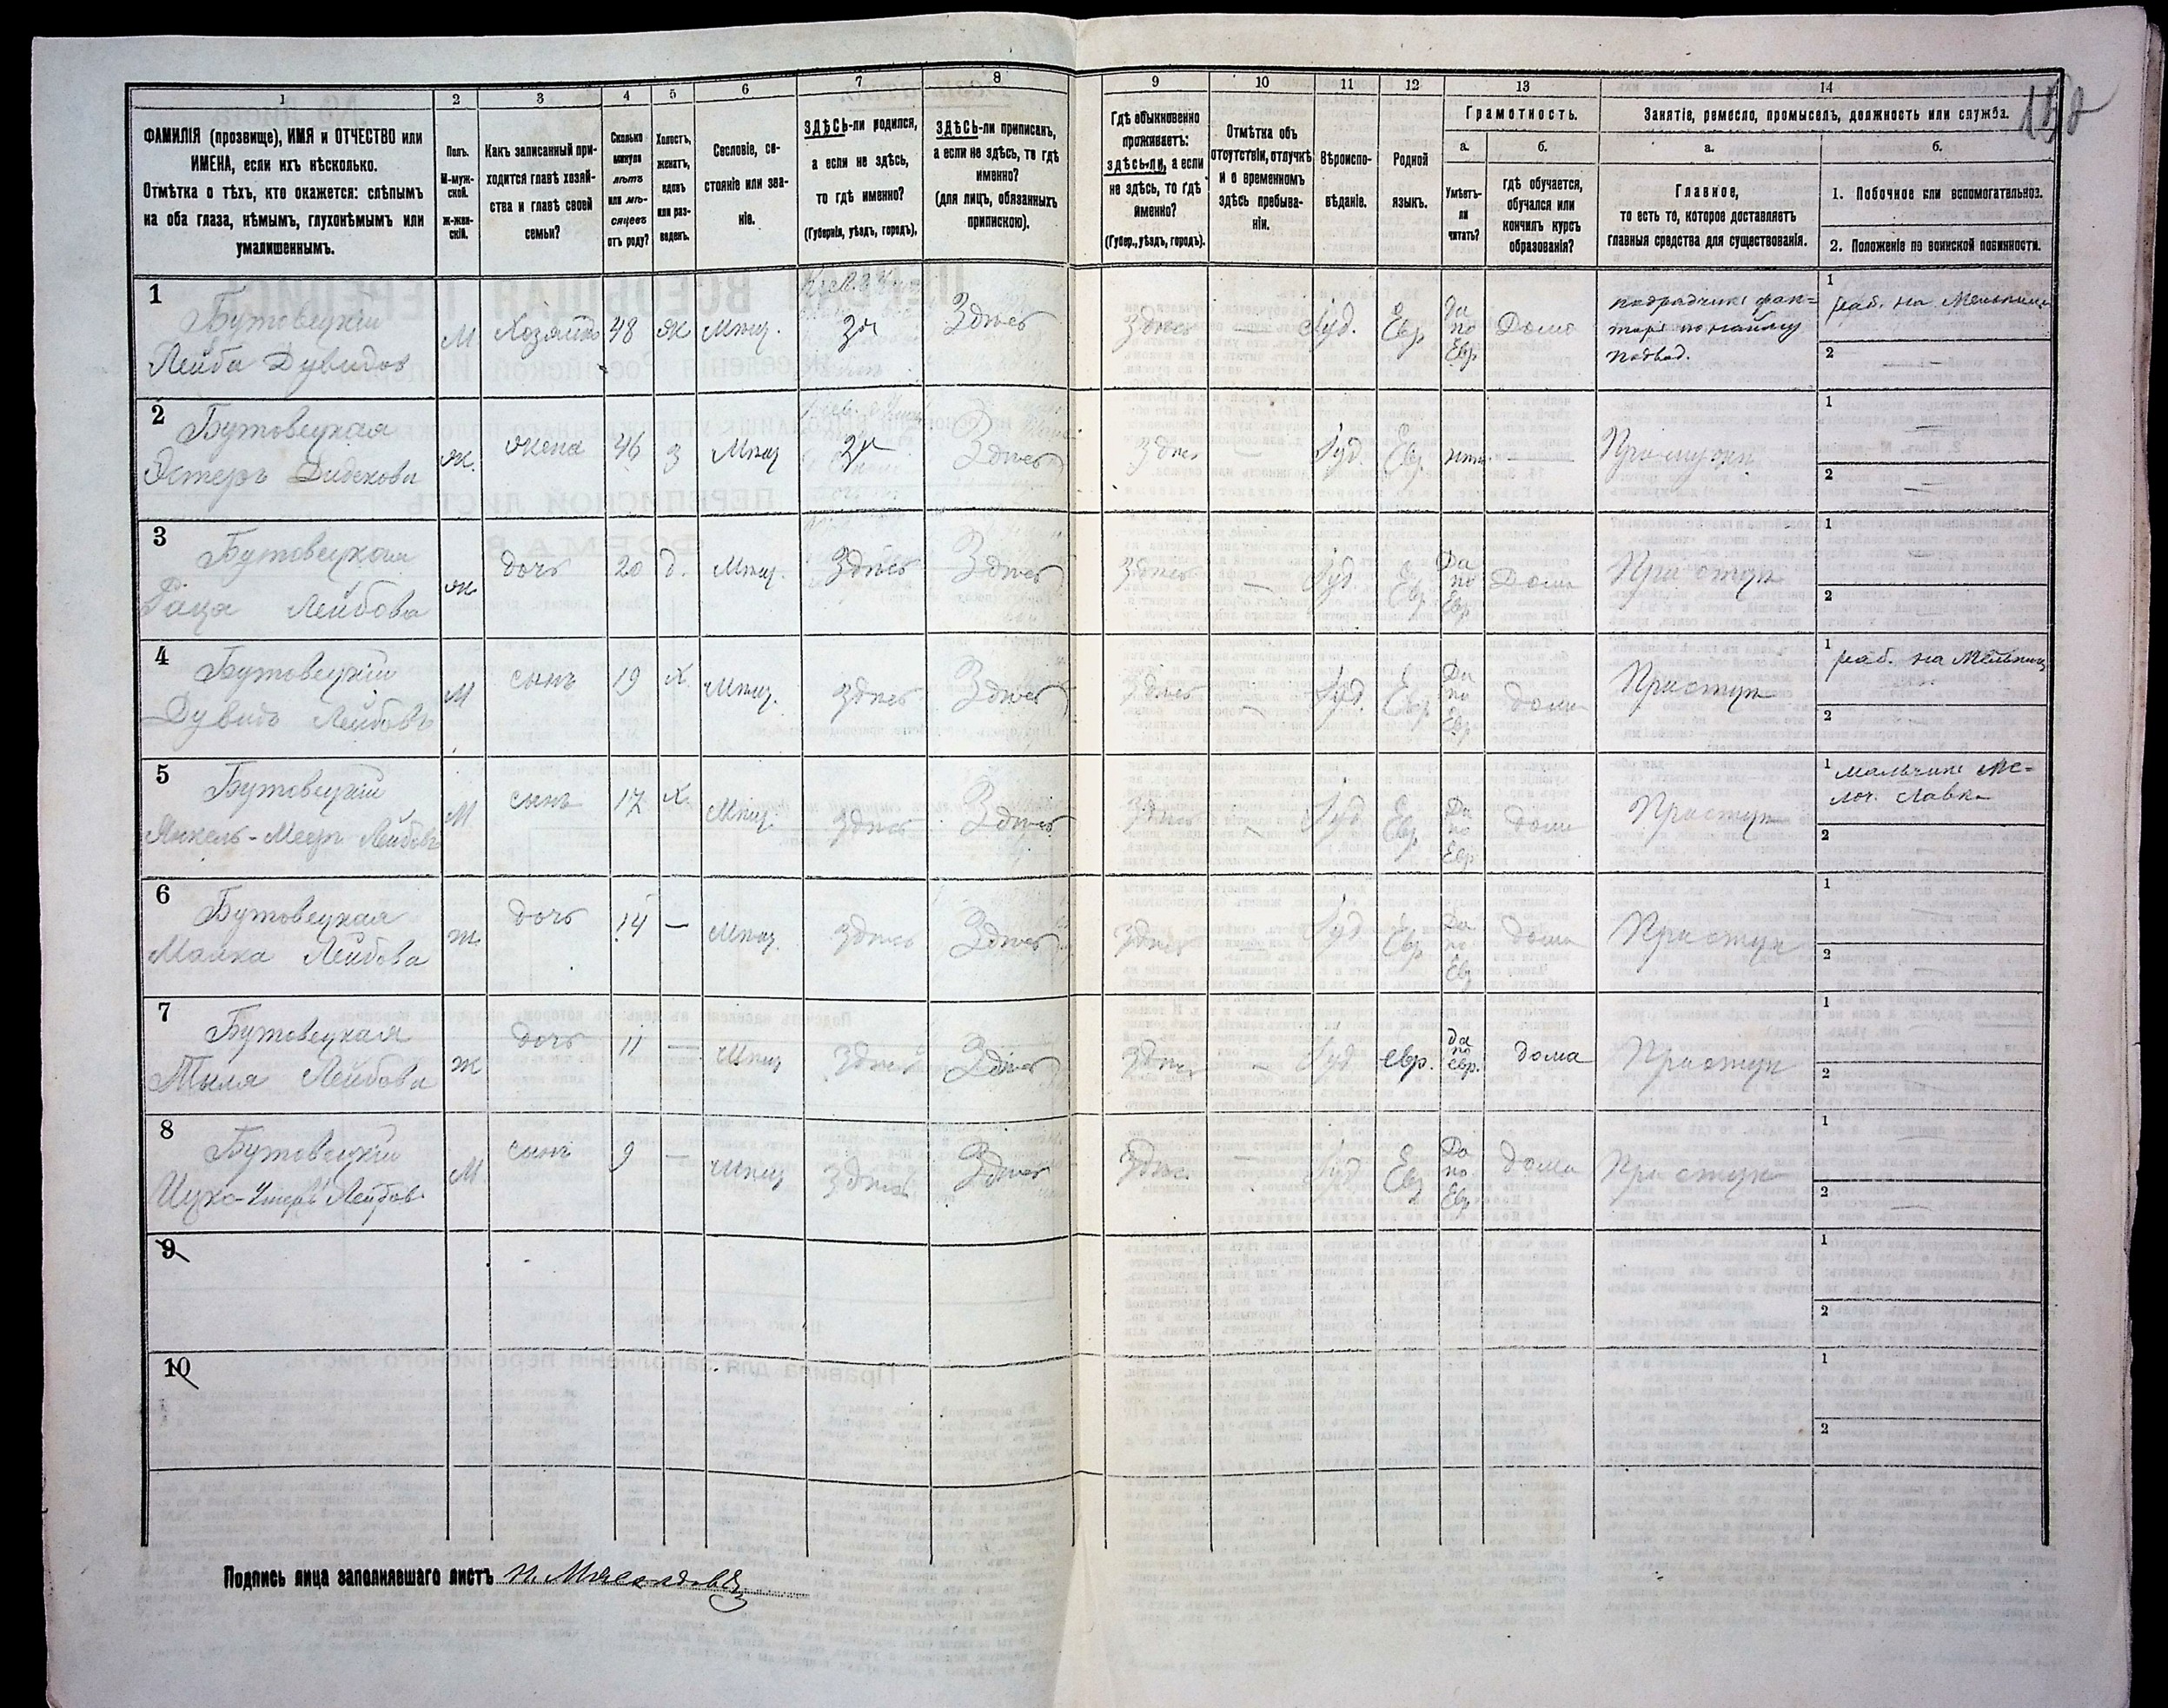 150
1
2
3
4
5
6
7
8
9
10
11
12
13
14
ФАМИЛІЯ (прозвище), ИМЯ и ОТЧЕСТВО или
ИМЕНА, если ихъ нѣсколько.
Отмѣтка о тѣхъ, кто окажется: слѣпымъ
на оба глаза, нѣмымъ, глухонѣмымъ или
умалишеннымъ.
Полъ.
М-муж-
ской.
Ж-жен-
скій.
Какъ записанный при-
ходится главѣ хозяй-
ства и главѣ своей
семьи?
Сколько
минуло
лѣтъ
или мѣ-
сяцевъ
отъ роду?
Холостъ,
женатъ,
вдовъ
или раз-
веденъ.
Сословіе, со-
стояніе или зва-
ніе.
ЗДѢСЬ-ли родился,
а если не здѣсь,
то гдѣ именно?
(Губернія, уѣздъ, городъ).
ЗДѢСЬ-ли приписанъ,
а если не здѣсь, то гдѣ
именно?
(для лицъ, обязанныхъ
припискою).
Гдѣ обыкновенно
проживаетъ:
здѣсь-ли, а если
не здѣсь, то гдѣ
именно?
(Губер., уѣздъ, городъ).
Отмѣтка объ
отсутствіи, отлучкѣ
и о временномъ
здѣсь пребыва-
ніи.
Вѣроиспо-
вѣданіе.
Родной
языкъ.
Грамотность.
а.
Умѣетъ-
ли
читать?
б.
гдѣ обучается,
обучался или
кончилъ курсъ
образованія?
Занятіе, ремесло, промыселъ, должность или служба.
а.
Главное,
то есть то, которое доставляетъ
главныя средства для существованія.
б.
1. Побочное или вспомогательное.
2. Положеніе по воинской повинности.
1
Бутовецкій
Лейба Дувидов
М Хозяинъ 48 ж Мѣщ. Здѣсь
Здѣсь — Іуд. Евр. Да по Евр. Дома
подрядчикъ фак-
торъ по найму
подвод.
1 раб. на Мельницѣ
2 —
2
Бутовецкая
Эстеръ
ж. жена 46 з Мѣщ Здѣсь
Здѣсь — Іуд. Евр. нѣтъ При мужѣ
1 —
2 —
3
Бутовецкая
Лейбова
ж. дочь 20 д. Мѣщ. Здѣсь Здѣсь
Здѣсь — Іуд. Евр. Да по Евр. Дома При отцѣ
1 —
2 —
4
Бутовецкій
Дувидъ Лейбовъ
М сынъ 19 х. Мѣщ. Здѣсь Здѣсь
Здѣсь — Іуд. Евр. Да по Евр. дома При отцѣ
1 раб. на Мельницѣ
2 —
5
Бутовецкій
Янкель-Мееръ Лейбовъ
М сынъ 17 х. Мѣщ. Здѣсь Здѣсь
Здѣсь — Іуд. Евр. Да по Евр. дома При отцѣ
1 мальчикъ ме-
лоч. лавкѣ
2 —
6
Бутовецкая
Малка Лейбова
ж. дочь 14 — Мѣщ. Здѣсь Здѣсь
Здѣсь — Іуд. Евр. Да по Евр. дома При отцѣ
1 —
2 —
7
Бутовецкая
Тыля Лейбова
ж дочь 11 — Мѣщ Здѣсь Здѣсь
Здѣсь — Іуд. евр. да по евр. дома При отцѣ
1 —
2 —
8
Бутовецкій
Лейбов
М. сынъ 9 — Мѣщ Здѣсь Здѣсь
Здѣсь — Іуд. Евр. Да по Евр. дома При отцѣ
1
2 —
9
1
2
10
1
2
Подпись лица заполнявшаго листъ